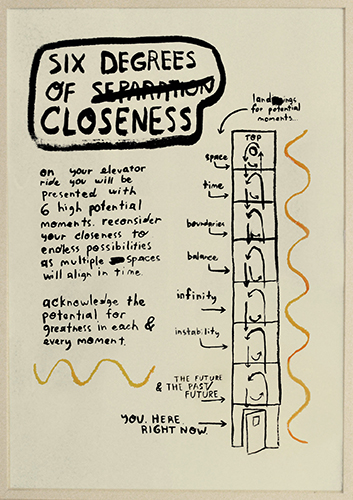 SIX DEGREES
OF SEPARATION
CLOSENESS
on your elevator
ride you will be
presented with
6 high potential
moments. reconsider
your closeness to
endless possibilities
as multiple spaces
will align in time.
acknowledge the
potential for
greatness in each &
every moment.
landings
for potential
moments...
TOP
space
time
boundaries
balance
infinity
instability
THE FUTURE
& THE PAST/
FUTURE
YOU. HERE.
RIGHT NOW.